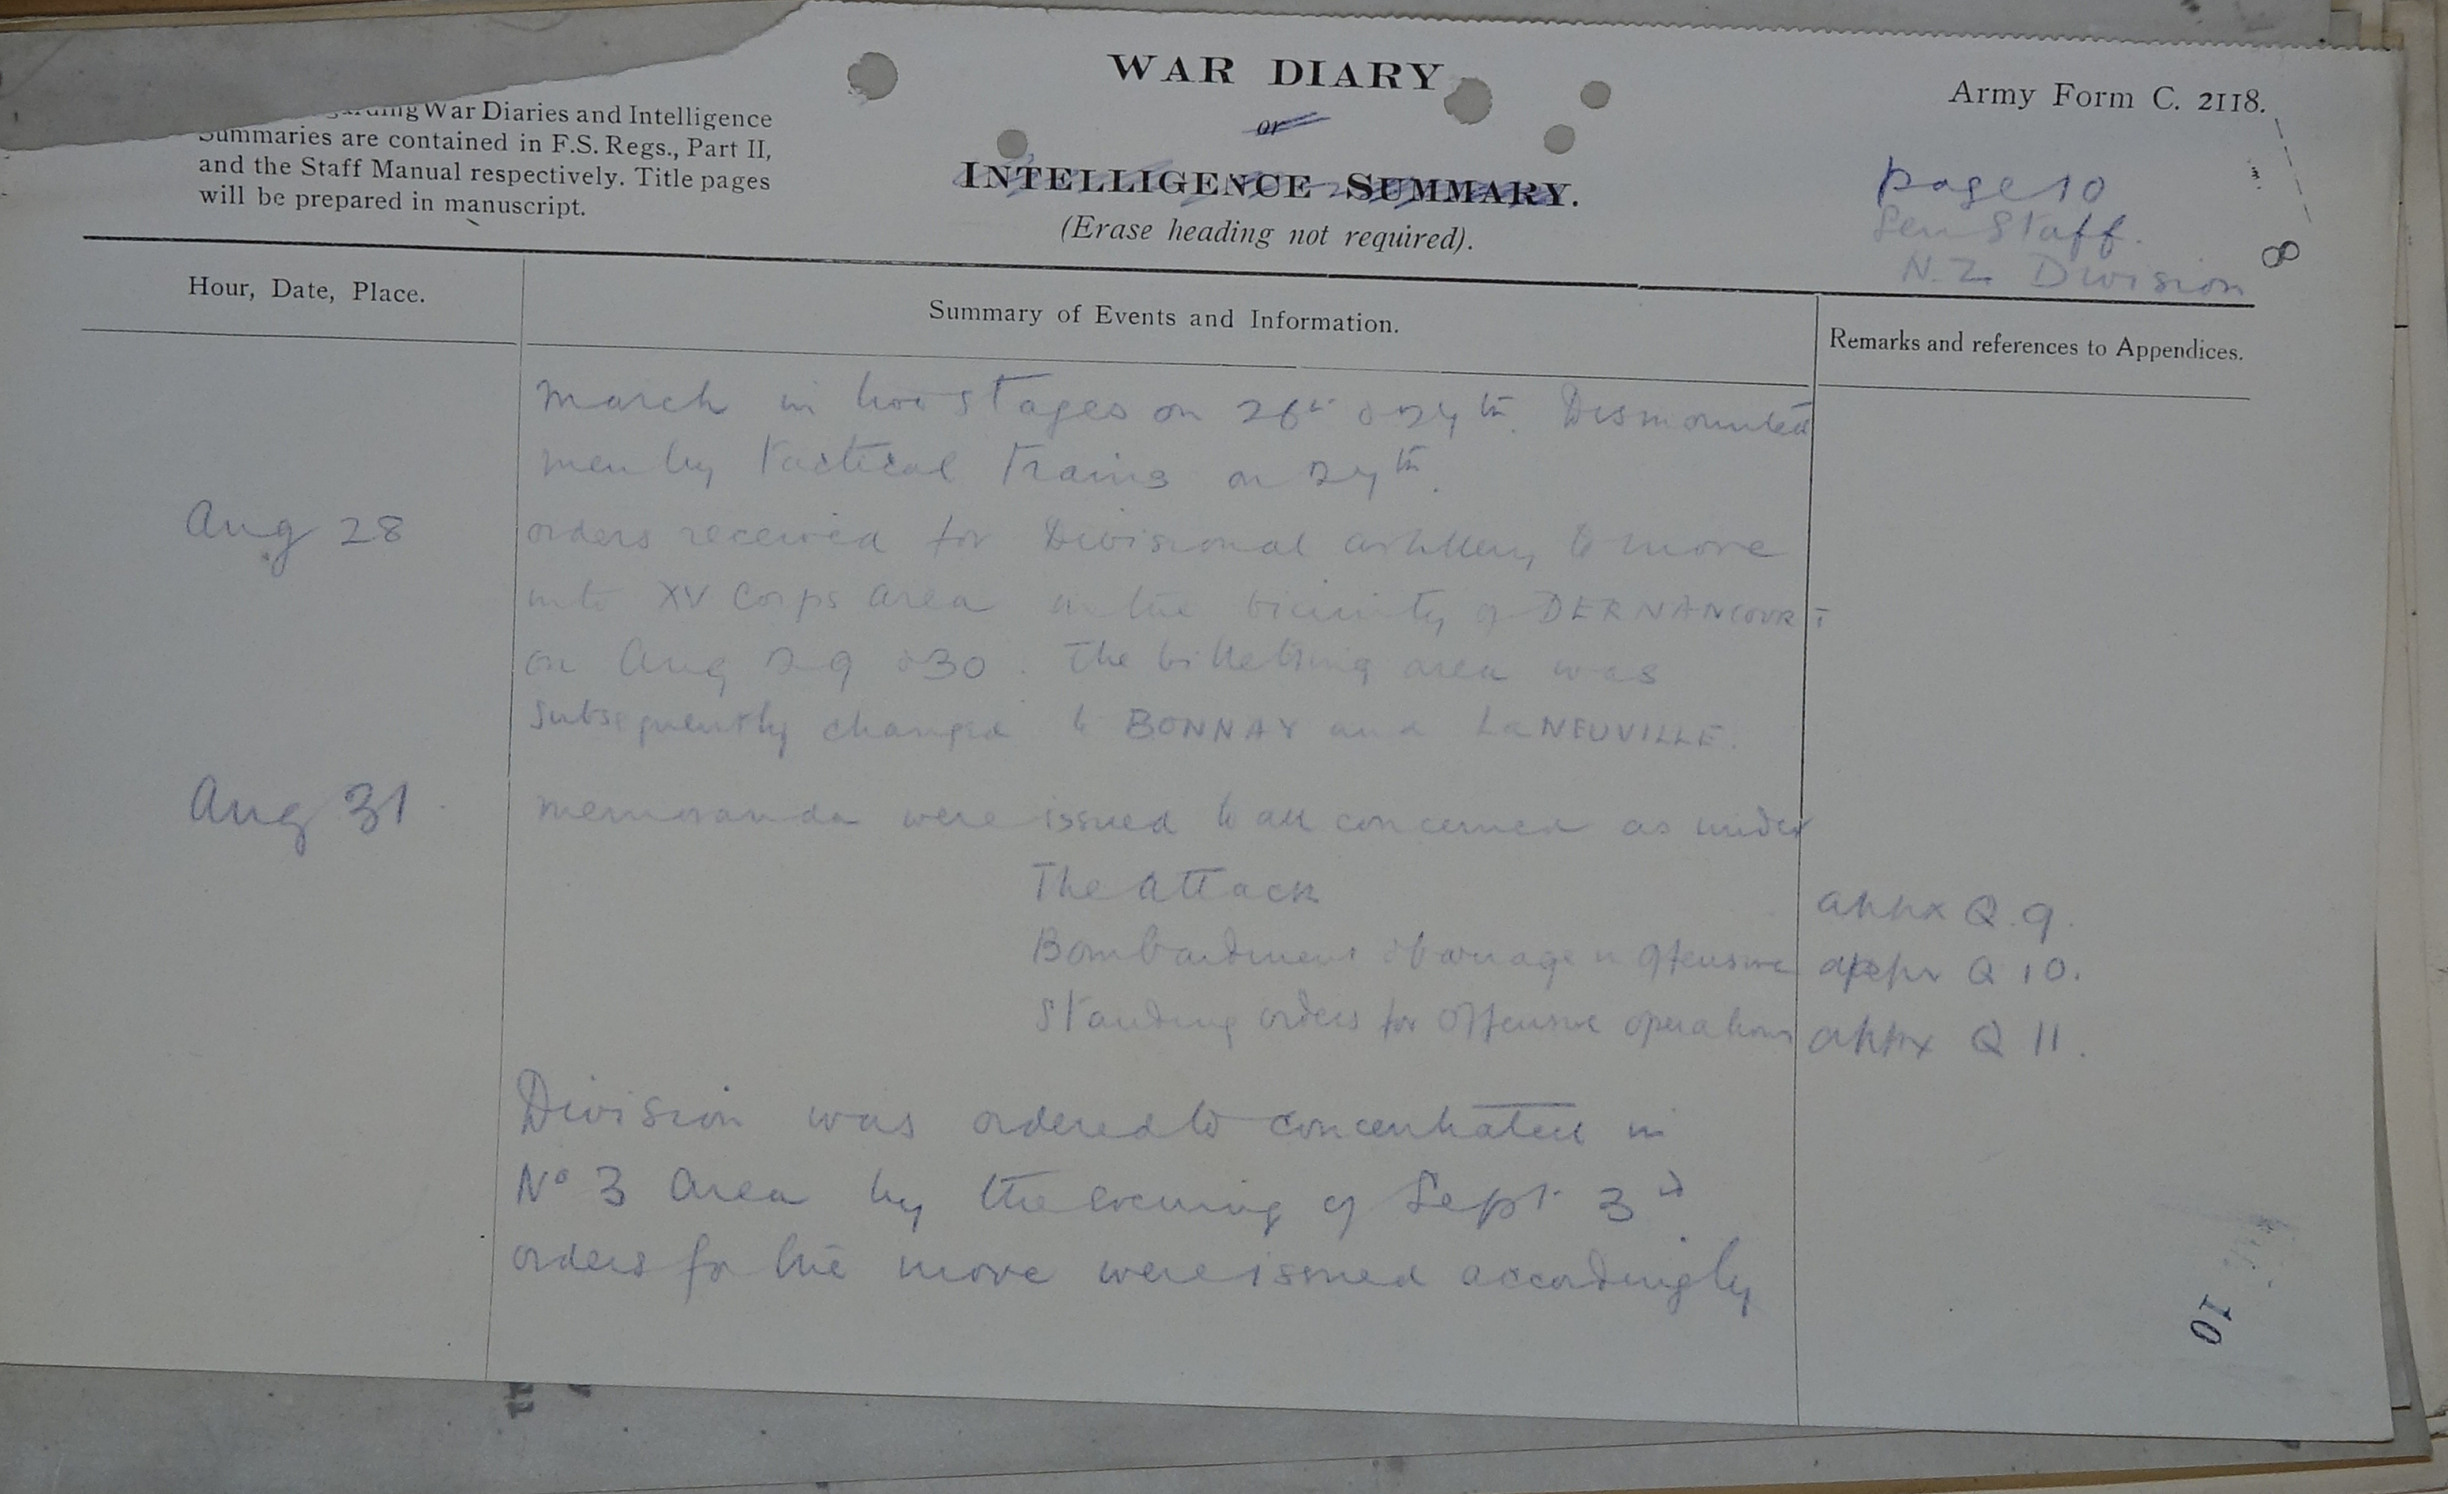 WAR DIARY
or
INTELLIGENCE SUMMARY.
(Erase heading not required).
Army Form C. 2118.
War Diaries and Intelligence
Summaries are contained in F.S. Regs., Part II,
and the Staff Manual respectively. Title pages
will be prepared in manuscript.
page 10
Gen Staff.
N.Z. Division
8
Hour, Date, Place.
Summary of Events and Information.
Remarks and references to Appendices.
march in two stages on 26th & 27th. Dismounted
men by tactical trains on 27th.
Aug 28
orders received for Divisional artillery to move
into XV Corps area in the vicinity of DERNANCOURT
on Aug 29 & 30. The billeting area was
subsequently changed to BONNAY and La NEUVILLE.
Aug 31.
memoranda were issued to all concerned as under
The attack
appx Q.9.
Bombardment & barrage in offensive
appx Q 10.
Standing orders for offensive operations
appx Q 11.
Division was ordered to concentrate in
No 3 area by the evening of Sept 3rd
orders for the move were issued accordingly
10